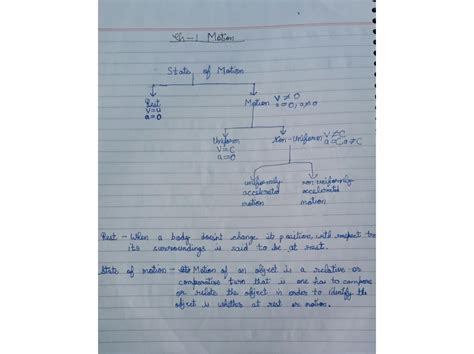 Ch-1 Motion
State of Motion
Rest
V=u
a=0
Motion V≠0
a=0, a≠0
Uniform
V=C
a=0
Non-Uniform V≠C
a=C, a≠C
uniformly
accelerated
motion
non uniformly
accelerated
motion
Rest - When a body doesn't change its position with respect to
its surroundings is said to be at rest.
State of motion - Motion of an object is a relative or
comparative turn that is one has to compare
or relate the object in order to identify the
object is whether at rest or motion.